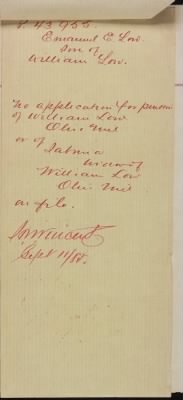 43,955.
Emanuel E Low.
Son of
William Low.
No application for pension
of William Low
Ohio Mil
or of
Sabina
widow of
William Low
Ohio Mil
on file.
Sept 11/88.